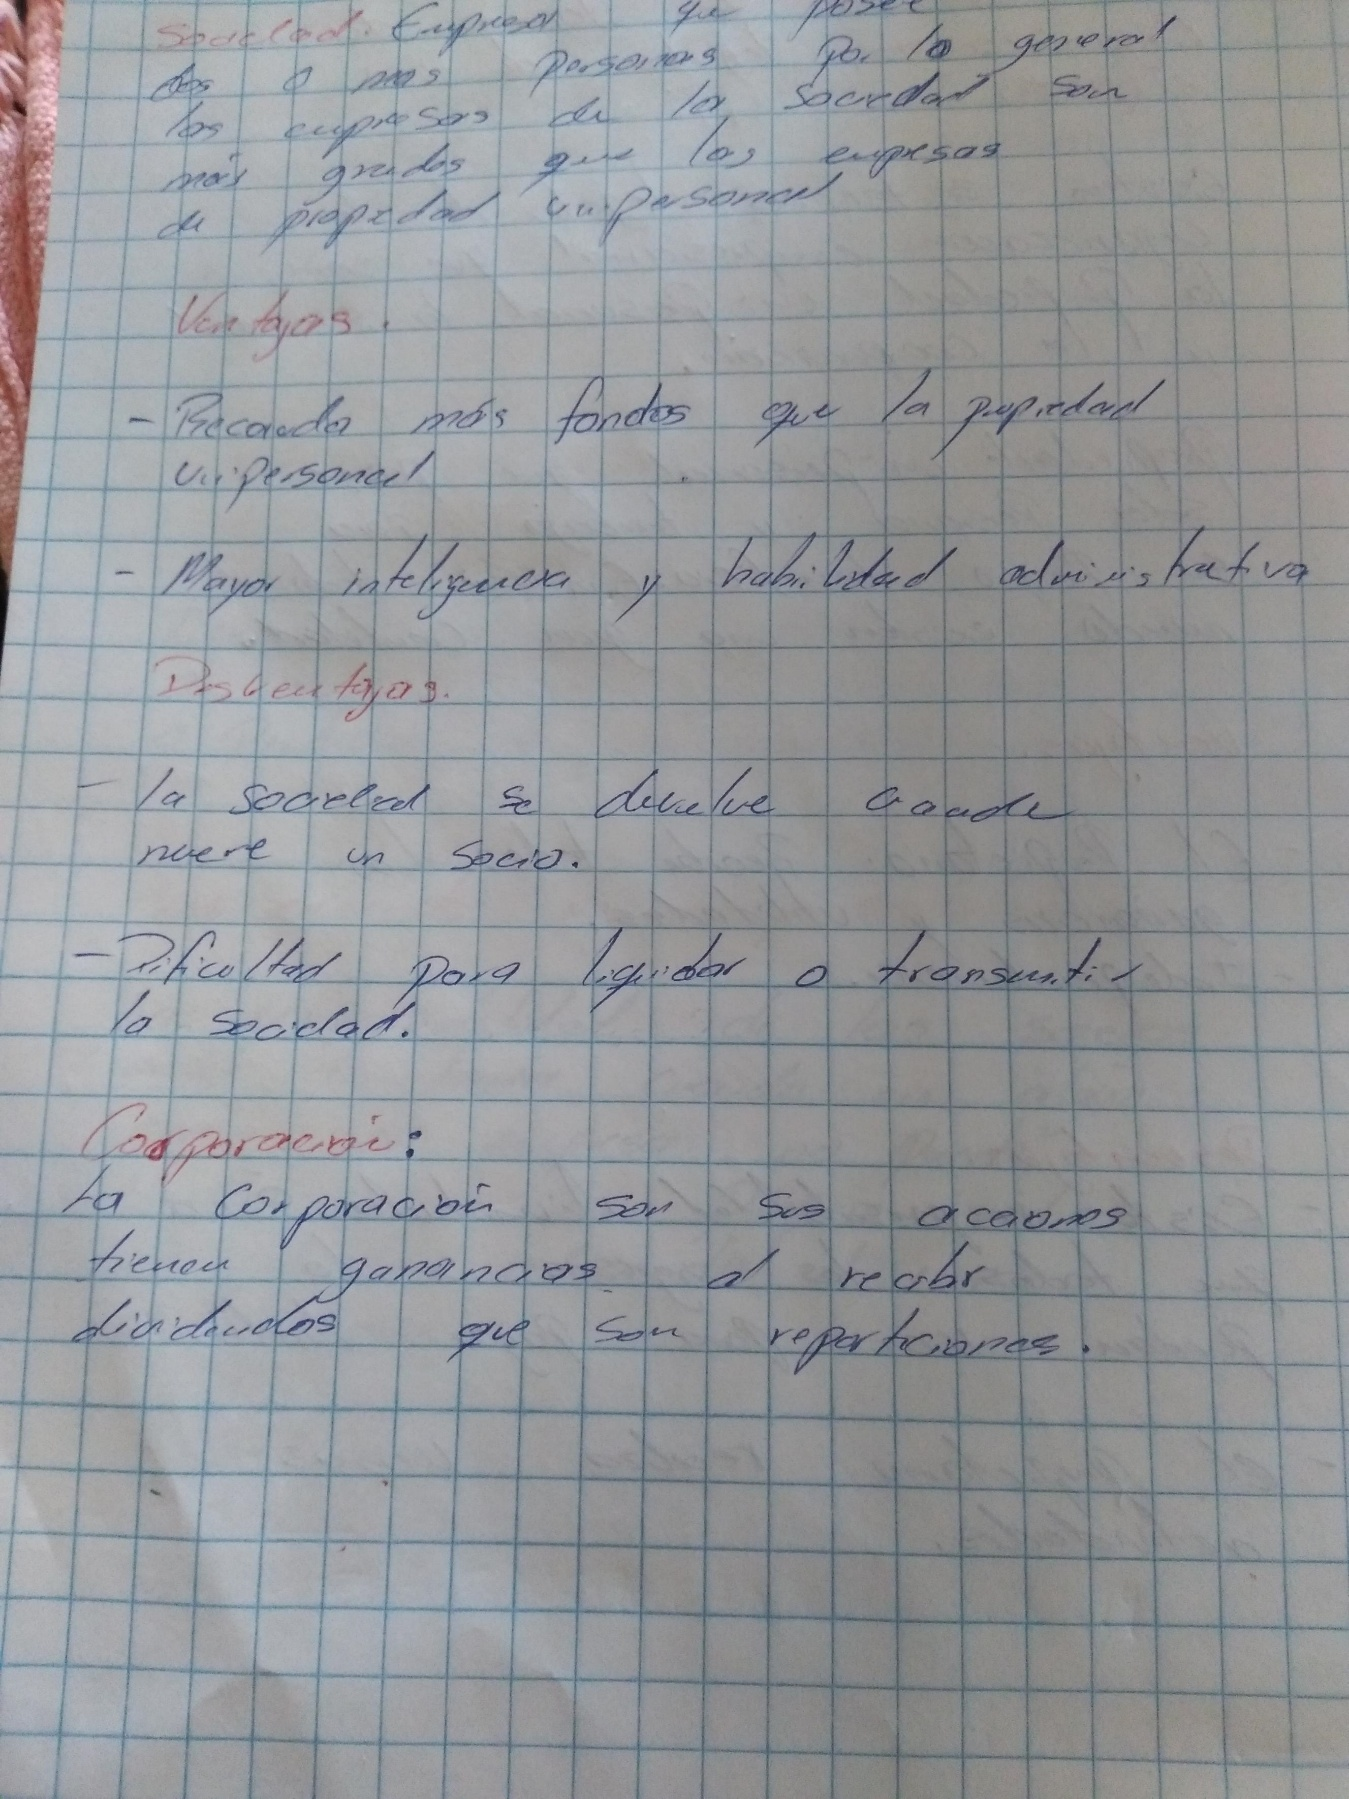 Sociedad. Empresa que posee
dos o mas personas por lo general
las empresas de la sociedad son
más grades que las empresas
de propiedad unipersonal
Ventajas.
- Recauda más fondos que la propiedad
unipersonal
- Mayor inteligencia y habilidad administrativa
Desventajas.
- la sociedad se devuelve cuando
muere un socio.
- Dificultad para liquidar o transmitir
la socidad.
Corporación:
La Corporación son sus acciones
tienen ganancias al recibir
dividendos que son reparticiones.